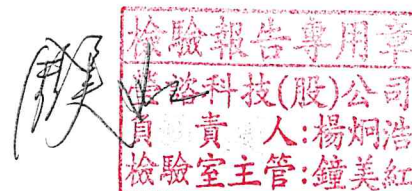 檢驗報告專用章
科技(股)公司
負責人:楊炯浩
檢驗室主管:鐘美紅